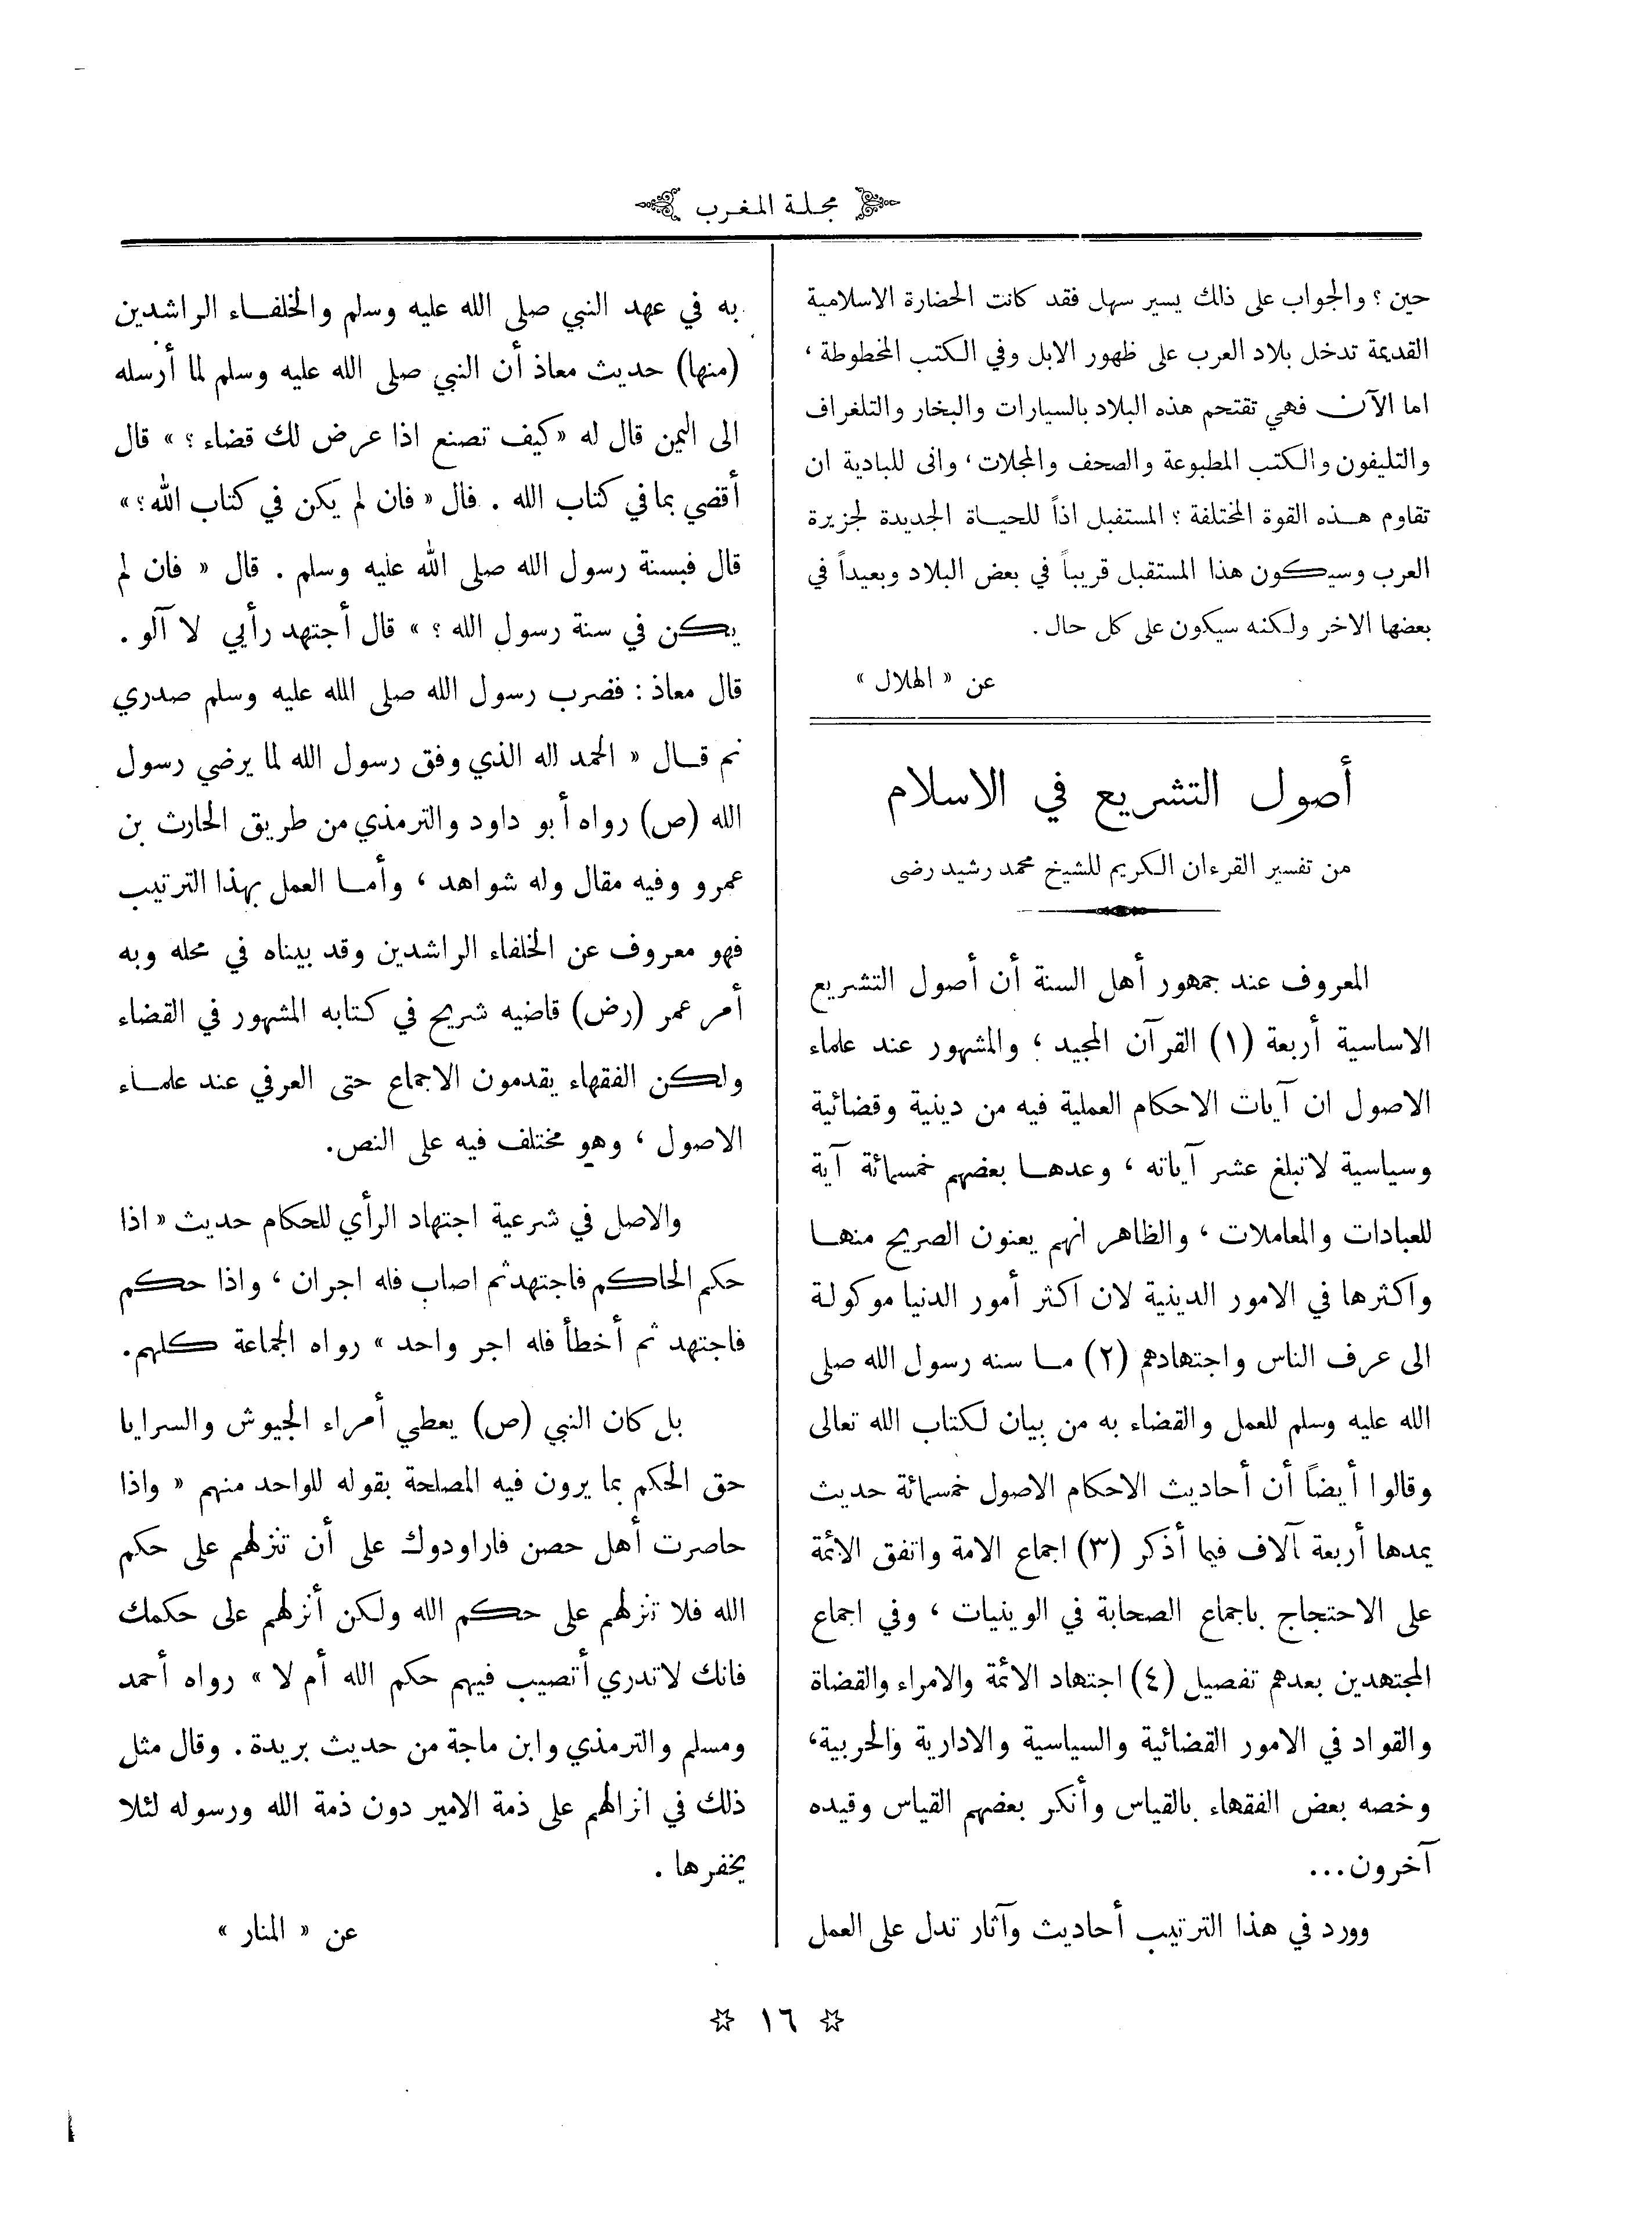 مجلة المغرب
حين ؟ والجواب على ذلك يسير سهل فقد كانت الحضارة الاسلامية
القديمة تدخل بلاد العرب على ظهور الابل وفي الكتب المخطوطة ،
اما الآن فهي تقتحم هذه البلاد بالسيارات والبخار والتلغراف
والتليفون والكتب المطبوعة والصحف والمجلات، وانى للبادية ان
تقاوم هذه القوة المختلفة ؟ المستفبل اذاً للحياة الجديدة لجزيرة
العرب وسيكون هذا المستقبل قريباً في بعض البلاد وبعيداً في
بعضها الاخر ولكنه سيكون على كل حال .
عن « الهلال »
أصول التشريع في الاسلام
من تفسير القرءان الكريم للشيخ محمد رشيد رضى
المعروف عند جمهور أهل السنة أن أصول التشريع
الاساسية أربعة (١) القرآن المجيد ؛ والمشهور عند علماء
الاصول ان آيات الاحكام العملية فيه من دينية وقضائية
وسياسية لاتبلغ عشر آياته ، وعدها بعضهم خمسمائة آية
للعبادات والمعاملات ، والظاهر انهم يعنون الصريح منها
واكثرها في الامور الدينية لان اكثر أمور الدنيا موكولة
الى عرف الناس واجتهادهم (٢) ما سنه رسول الله صلى
الله عليه وسلم للعمل والقضاء به من بيان لكتاب الله تعالى
وقالوا أيضاً أن أحاديث الاحكام الاصول خمسمائة حديث
يمدها أربعة آلاف فيما أذكر (٣) اجماع الامة واتفق الائمة
على الاحتجاج باجماع الصحابة في الوينيات ، وفي اجماع
المجتهدين بعدهم تفصيل (٤) اجتهاد الائمة والامراء والقضاة
والقواد في الامور القضائية والسياسية والادارية والحربية،
وخصه بعض الفقهاء بالقياس وأنكر بعضهم القياس وقيده
آخرون...
وورد في هذا الترتيب أحاديث وآثار تدل على العمل
به في عهد النبي صلى الله عليه وسلم والخلفاء الراشدين
(منها) حديث معاذ أن النبي صلى الله عليه وسلم لما أرسله
الى اليمن قال له «كيف تصنع اذا عرض لك قضاء ؟ » قال
أقضي بما في كتاب الله . فال « فان لم يكن في كتاب الله؟»
قال فبسنة رسول الله صلى الله عليه وسلم . قال « فان لم
يكن في سنة رسول الله ؟ » قال أجتهد رأيي لا آلو .
قال معاذ : فضرب رسول الله صلى الله عليه وسلم صدري
نم قال « الحمد اله الذي وفق رسول الله لما يرضي رسول
الله (ص) رواه أبو داود والترمذي من طريق الحارث بن
عمرو وفيه مقال وله شواهد ، وأما العمل بهذا الترتيب
فهو معروف عن الخلفاء الراشدين وقد بيناه في محله وبه
أمر عمر (رض) قاضيه شريح في كتابه المشهور في القضاء
ولكن الفقهاء يقدمون الاجماع حتى العرفي عند علماء
الاصول ، وهو مختلف فيه على النص.
والاصل في شرعية اجتهاد الرأي للحكام حديث « اذا
حكم الحاكم فاجتهد ثم اصاب فله اجران ، واذا حكم
فاجتهد ثم أخطأ فله اجر واحد » رواه الجماعة كلهم.
بل كان النبي (ص) يعطي أمراء الجيوش والسرايا
حق الحكم بما يرون فيه المصلحة بقوله للواحد منهم « واذا
حاصرت أهل حصن فاراودوك على أن تنزلهم على حكم
الله فلا تنزلهم على حكم الله ولكن أنزلهم على حكمك
فانك لاتدري أتصيب فيهم حكم الله أم لا » رواه أحمد
ومسلم والترمذي وابن ماجة من حديث بريدة . وقال مثل
ذلك في انزالهم على ذمة الامير دون ذمة الله ورسوله لئلا
يخفرها .
عن « المنار »
☆ ١٦ ☆